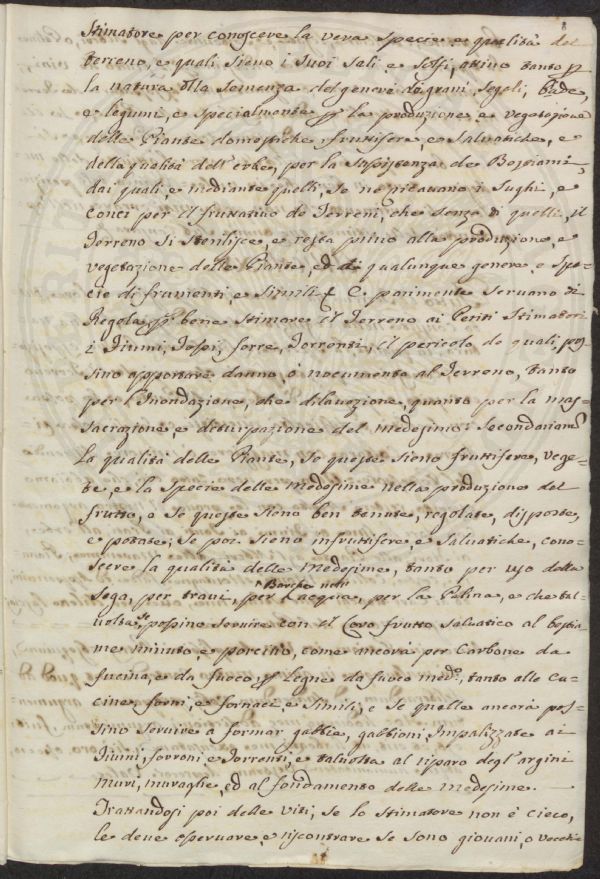 Stimatore per conoscere la vera specie, e qualità del
terreno, e quali sieno i suoi sali, e solfi, atino tanto p
la natura alla Semenza del genere de grani, Segoli, biade,
e legumi, e specialmente p la produzione, e vegetazione
delle Piante domestiche, fruttifere, e Salvatiche, e
della qualità dell'erbe, per la Sussistenza de Bestiami,
dai quali, e mediante quelli, se ne ricavano i Sughi, e
Conci per il fruttativo de Terreni, che senza di quelli, il
Terreno si Sterilisce, e resta privo alla produzione, e
vegetazione delle Piante, ed di qualunque genere, e Spe=
cie di framenti, e Simili & C. parimente servano di
Regola p bene Stimare il Terreno ai Periti Stimatori
i Fiumi, Fossi, forre, Torrenti, il pericolo de quali, pos=
sino apportare danno, ò nocumento al Terreno, tanto
per l'Inondazione, che dilavazione, quanto per la mas=
sacrazione, e deturpazione del medesimo: Secondariam.e
La qualità delle Piante, se queste sieno fruttifere, vege=
te, e la Specie delle medesime nella produzione del
frutto, o se queste sieno ben tenute, regolate, disposte,
e potate; Se poi sieno infruttifere, e Salvatiche, cono=
scere la qualità delle Medesime, tanto per uso della
Sega, per travi, per Barche nell' acqua, per la Pelina, e che tal=
volta se possino servire con il Loro frutto salvatico al bestia=
me minuto, e porcino, come ancora per Carbone da
fucina, e da fuoco, p legne da fuoco med.e, tanto alle Cu=
cine, forni, e fornaci, e Simili, e se quelle ancora pos=
sino servire a formar gabbie, gabbioni, Impalizzate ai
Fiumi, forroni, e Torrenti, e talvolta al riparo degl'argini
Muri, muraglie, ed al fondamento delle medesime.
Trattandosi poi delle viti, se lo Stimatore non è cieco,
le deve osservare, e riscontrare se sono giovani, o vecchie